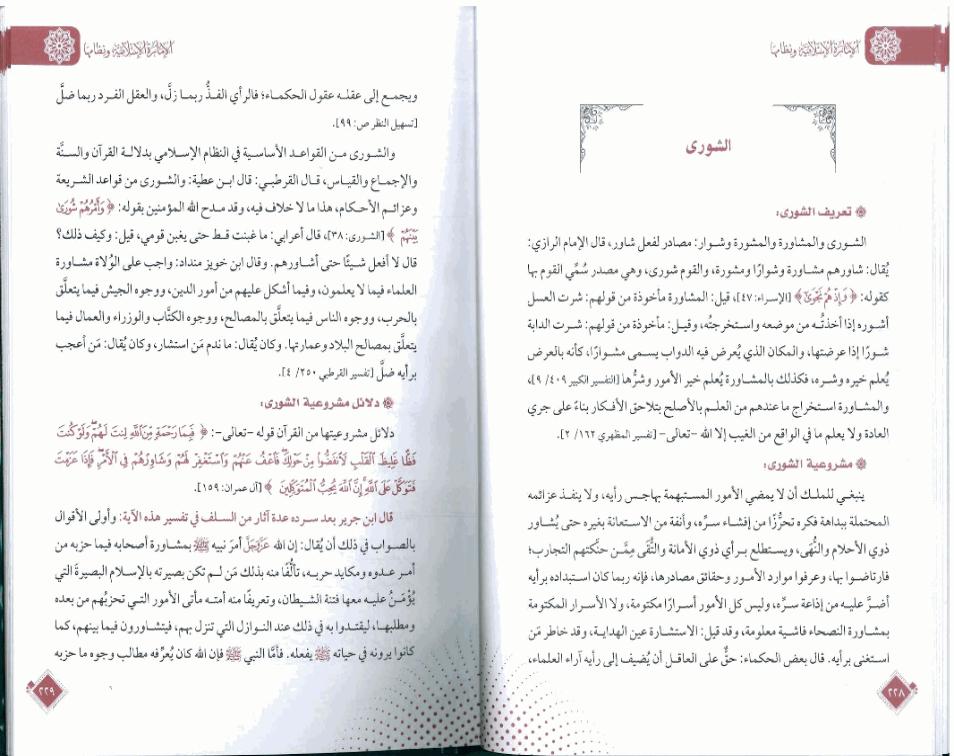 الإمارة الإسلامية ونظامها
الشورى
تعريف الشورى:
الشورى والمشاورة والمشورة وشوار: مصادر لفعل شاور، قال الإمام الرازي:
يُقال: شاورهم مشاورة وشوارًا ومشورة، والقوم شورى، وهي مصدر سُمِّي القوم بها
كقوله: ﴿وَإِذْ هُمْ نَجْوَىٰٓ﴾ [الإسراء: ٤٧]، قيل: المشاورة مأخوذة من قولهم: شرت العسل
أشوره إذا أخذتُه من موضعه واستخرجتُه، وقيل: مأخوذة من قولهم: شرت الدابة
شورًا إذا عرضتها، والمكان الذي يُعرض فيه الدواب يسمى مشوارًا، كأنه بالعرض
يُعلم خيره وشره، فكذلك بالمشاورة يُعلم خير الأمور وشرُّها [التفسير الكبير ٤٠٩/ ٩]،
والمشاورة استخراج ما عندهم من العلم بالأصلح بتلاحق الأفكار بناءً على جري
العادة ولا يعلم ما في الواقع من الغيب إلا الله -تعالى- [تفسير المظهري ١٦٢/ ٢].
مشروعية الشورى:
ينبغي للملك أن لا يمضي الأمور المستبهمة بهاجس رأيه، ولا ينفذ عزائمه
المحتملة ببداهة فكره تحرُّزًا من إفشاء سرِّه، وأنفة من الاستعانة بغيره حتى يُشاور
ذوي الأحلام والنُّهَى، ويستطلع برأي ذوي الأمانة والتُّقَى مِمَّن حنَّكتهم التجارب؛
فارتاضوا بها، وعرفوا موارد الأمور وحقائق مصادرها، فإنه ربما كان استبداده برأيه
أضرَّ عليه من إذاعة سرِّه، وليس كل الأمور أسرارًا مكتومة، ولا الأسرار المكتومة
بمشاورة النصحاء فاشية معلومة، وقد قيل: الاستشارة عين الهداية، وقد خاطر مَن
استغنى برأيه. قال بعض الحكماء: حقٌّ على العاقل أن يُضيف إلى رأيه آراء العلماء،
٢٢٨
الإمارة الإسلامية ونظامها
ويجمع إلى عقله عقول الحكماء؛ فالرأي الفذُّ ربما زلَّ، والعقل الفرد ربما ضلَّ
[تسهيل النظر ص: ٩٩].
والشورى من القواعد الأساسية في النظام الإسلامي بدلالة القرآن والسنَّة
والإجماع والقياس، قال القرطبي: قال ابن عطية: والشورى من قواعد الشريعة
وعزائم الأحكام، هذا ما لا خلاف فيه، وقد مدح الله المؤمنين بقوله: ﴿وَأَمْرُهُمْ شُورَىٰ
بَيْنَهُمْ﴾ [الشورى: ٣٨]، قال أعرابي: ما غبنت قط حتى يغبن قومي، قيل: وكيف ذلك؟
قال لا أفعل شيئًا حتى أشاورهم. وقال ابن خويز منداد: واجب على الوُلاة مشاورة
العلماء فيما لا يعلمون، وفيما أشكل عليهم من أمور الدين، ووجوه الجيش فيما يتعلَّق
بالحرب، ووجوه الناس فيما يتعلَّق بالمصالح، ووجوه الكتَّاب والوزراء والعمال فيما
يتعلَّق بمصالح البلاد وعمارتها. وكان يُقال: ما ندم مَن استشار، وكان يُقال: مَن أعجب
برأيه ضلَّ [تفسير القرطبي ٢٥٠/ ٤].
دلائل مشروعية الشورى:
دلائل مشروعيتها من القرآن قوله -تعالى-: ﴿فَبِمَا رَحْمَةٍ مِّنَ ٱللَّهِ لِنتَ لَهُمْ ۖ وَلَوْ كُنتَ
فَظًّا غَلِيظَ ٱلْقَلْبِ لَٱنفَضُّوا۟ مِنْ حَوْلِكَ ۖ فَٱعْفُ عَنْهُمْ وَٱسْتَغْفِرْ لَهُمْ وَشَاوِرْهُمْ فِى ٱلْأَمْرِ ۖ فَإِذَا عَزَمْتَ
فَتَوَكَّلْ عَلَى ٱللَّهِ ۚ إِنَّ ٱللَّهَ يُحِبُّ ٱلْمُتَوَكِّلِينَ﴾ [آل عمران: ١٥٩].
قال ابن جرير بعد سرده عدة آثار من السلف في تفسير هذه الآية: وأولى الأقوال
بالصواب في ذلك أن يُقال: إن الله عَزَّوَجَلَّ أمرَ نبيه ﷺ بمشاورة أصحابه فيما حزبه من
أمر عدوه ومكايد حربه، تألُّفًا منه بذلك مَن لم تكن بصيرته بالإسلام البصيرةَ التي
يُؤْمَنُ عليه معها فتنة الشيطان، وتعريفًا منه أمته مأتى الأمور التي تحزبُهم من بعده
ومطلبها، ليقتدوا به في ذلك عند النوازل التي تنزل بهم، فيتشاورون فيما بينهم، كما
كانوا يرونه في حياته ﷺ يفعله. فأمَّا النبي ﷺ فإن الله كان يُعرِّفه مطالب وجوه ما حزبه
٢٢٩